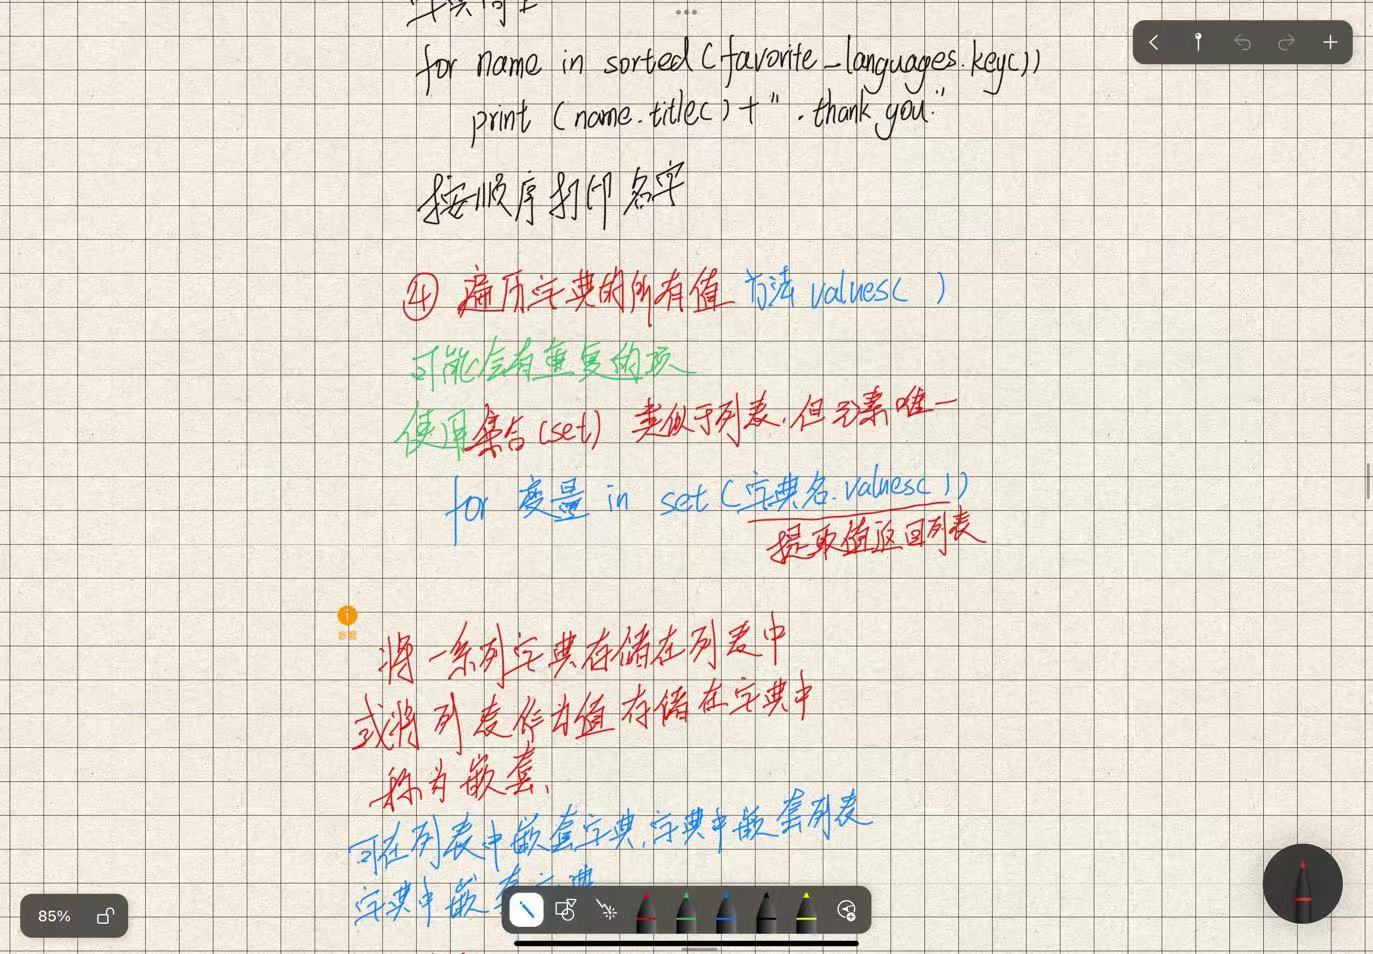 for name in sorted (favorite_languages.key())
print (name.title()+", thank you."
按顺序打印名字
④ 遍历字典的所有值 方法 values( )
可能会有重复的项
使用集合(set) 类似于列表,但元素唯一
for 变量 in set (字典名.values())
提取值返回列表
嵌套
将一系列字典存储在列表中
或将列表作为值存储在字典中
称为嵌套、
可在列表中嵌套字典,字典中嵌套列表
字典中嵌套字典
85%